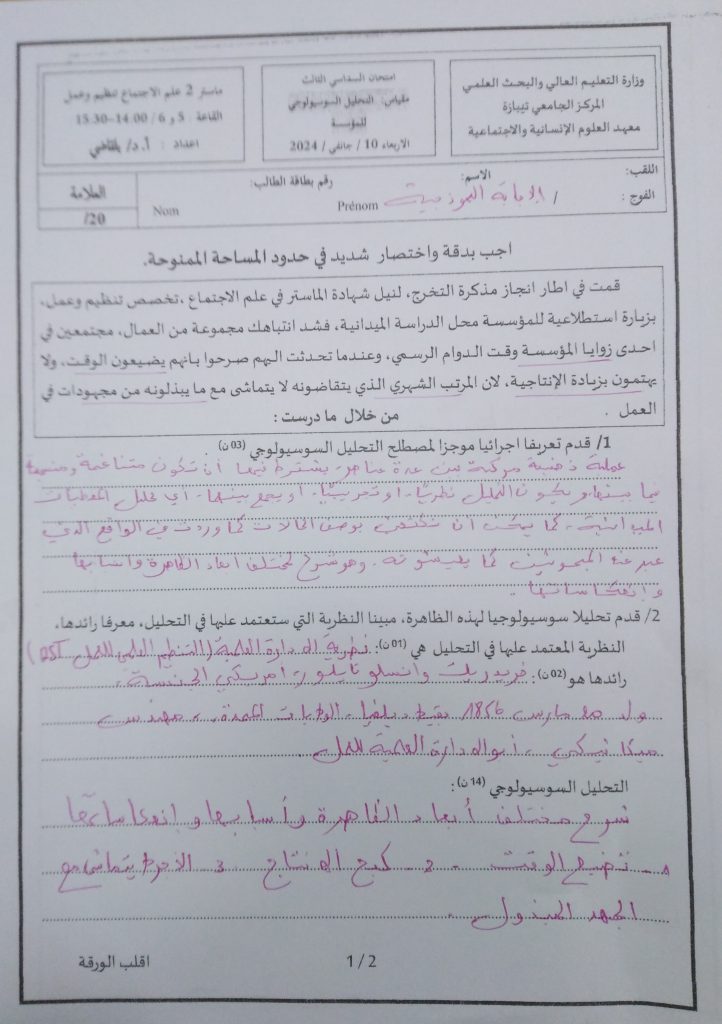 وزارة التعليم العالي والبحث العلمي
المركز الجامعي تيبازة
معهد العلوم الإنسانية والاجتماعية
امتحان السداسي الثالث
مقياس: التحليل السوسيولوجي
للمؤسسة
الاربعاء 10 / جانفي / 2024
ماستر 2 علم الاجتماع تنظيم وعمل
القاعة : 5 و 6 / 14:00-15.30
اعداد : أ.د/ بلقاضي
اللقب: الاسم: رقم بطاقة الطالب: العلامة
الفوج : / الإجابة النموذجية Prénom Nom /20
اجب بدقة واختصار شديد في حدود المساحة الممنوحة.
قمت في اطار انجاز مذكرة التخرج، لنيل شهادة الماستر في علم الاجتماع ،تخصص تنظيم وعمل،
بزيارة استطلاعية للمؤسسة محل الدراسة الميدانية، فشد انتباهك مجموعة من العمال، مجتمعين في
احدى زوايا المؤسسة وقت الدوام الرسمي، وعندما تحدثت اليهم صرحوا بانهم يضيعون الوقت، ولا
يهتمون بزيادة الإنتاجية، لان المرتب الشهري الذي يتقاضونه لا يتماشى مع ما يبذلونه من مجهودات في
العمل . من خلال ما درست :
1/ قدم تعريفا اجرائيا موجزا لمصطلح التحليل السوسيولوجي (03 ن):
عملية ذهنية مركبة من عدة عناصر، يشترط فيها أن تكون متناغمة ومنسجمة
فيما بينها ويكون التحليل نظريا، او تجريبيا، او يجمع بينهما، اي تحليل المعطيات
الميدانية، كما يمكن ان نكتفي بوصف الحالات كما وردت في الواقع الذي
عبر عنه المبحوثين كما يعيشونه. وهو شرح لمختلف ابعاد الظاهرة واسبابها
وانعكاساتها.
2/ قدم تحليلا سوسيولوجيا لهذه الظاهرة، مبينا النظرية التي ستعتمد عليها في التحليل، معرفا رائدها.
النظرية المعتمد عليها في التحليل هي (01 ن): نظرية الادارة العلمية (التنظيم العلمي للعمل OST)
رائدها هو (02 ن): فريدريك وانسلو تايلور، أمريكي الجنسية،
ولد مارس 1856 الولايات المتحدة، مهندس
ميكانيكي، أبو الادارة العلمية للعمل.
التحليل السوسيولوجي (14 ن):
شرح مختلف أبعاد الظاهرة وأسبابها وانعكاساتها
1- تضييع الوقت - 2- كبح الانتاج 3- الأجر لا يتماشى مع
الجهد المبذول.
1 / 2 اقلب الورقة